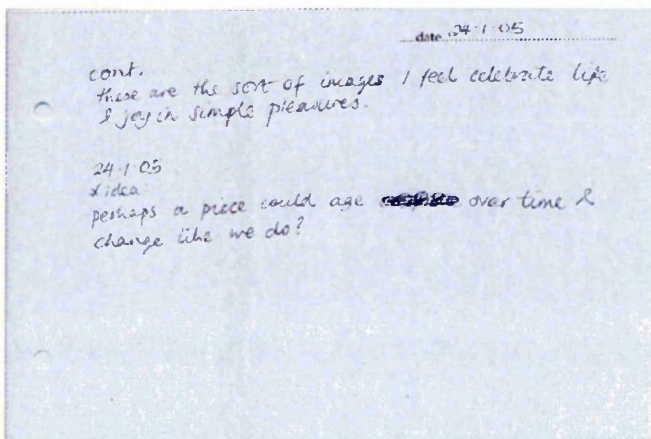 date 24·1·05
cont.
these are the sort of images I feel celebrate life
& joy in simple pleasures.
24·1·05
* idea
perhaps a piece could age over time &
change like we do?